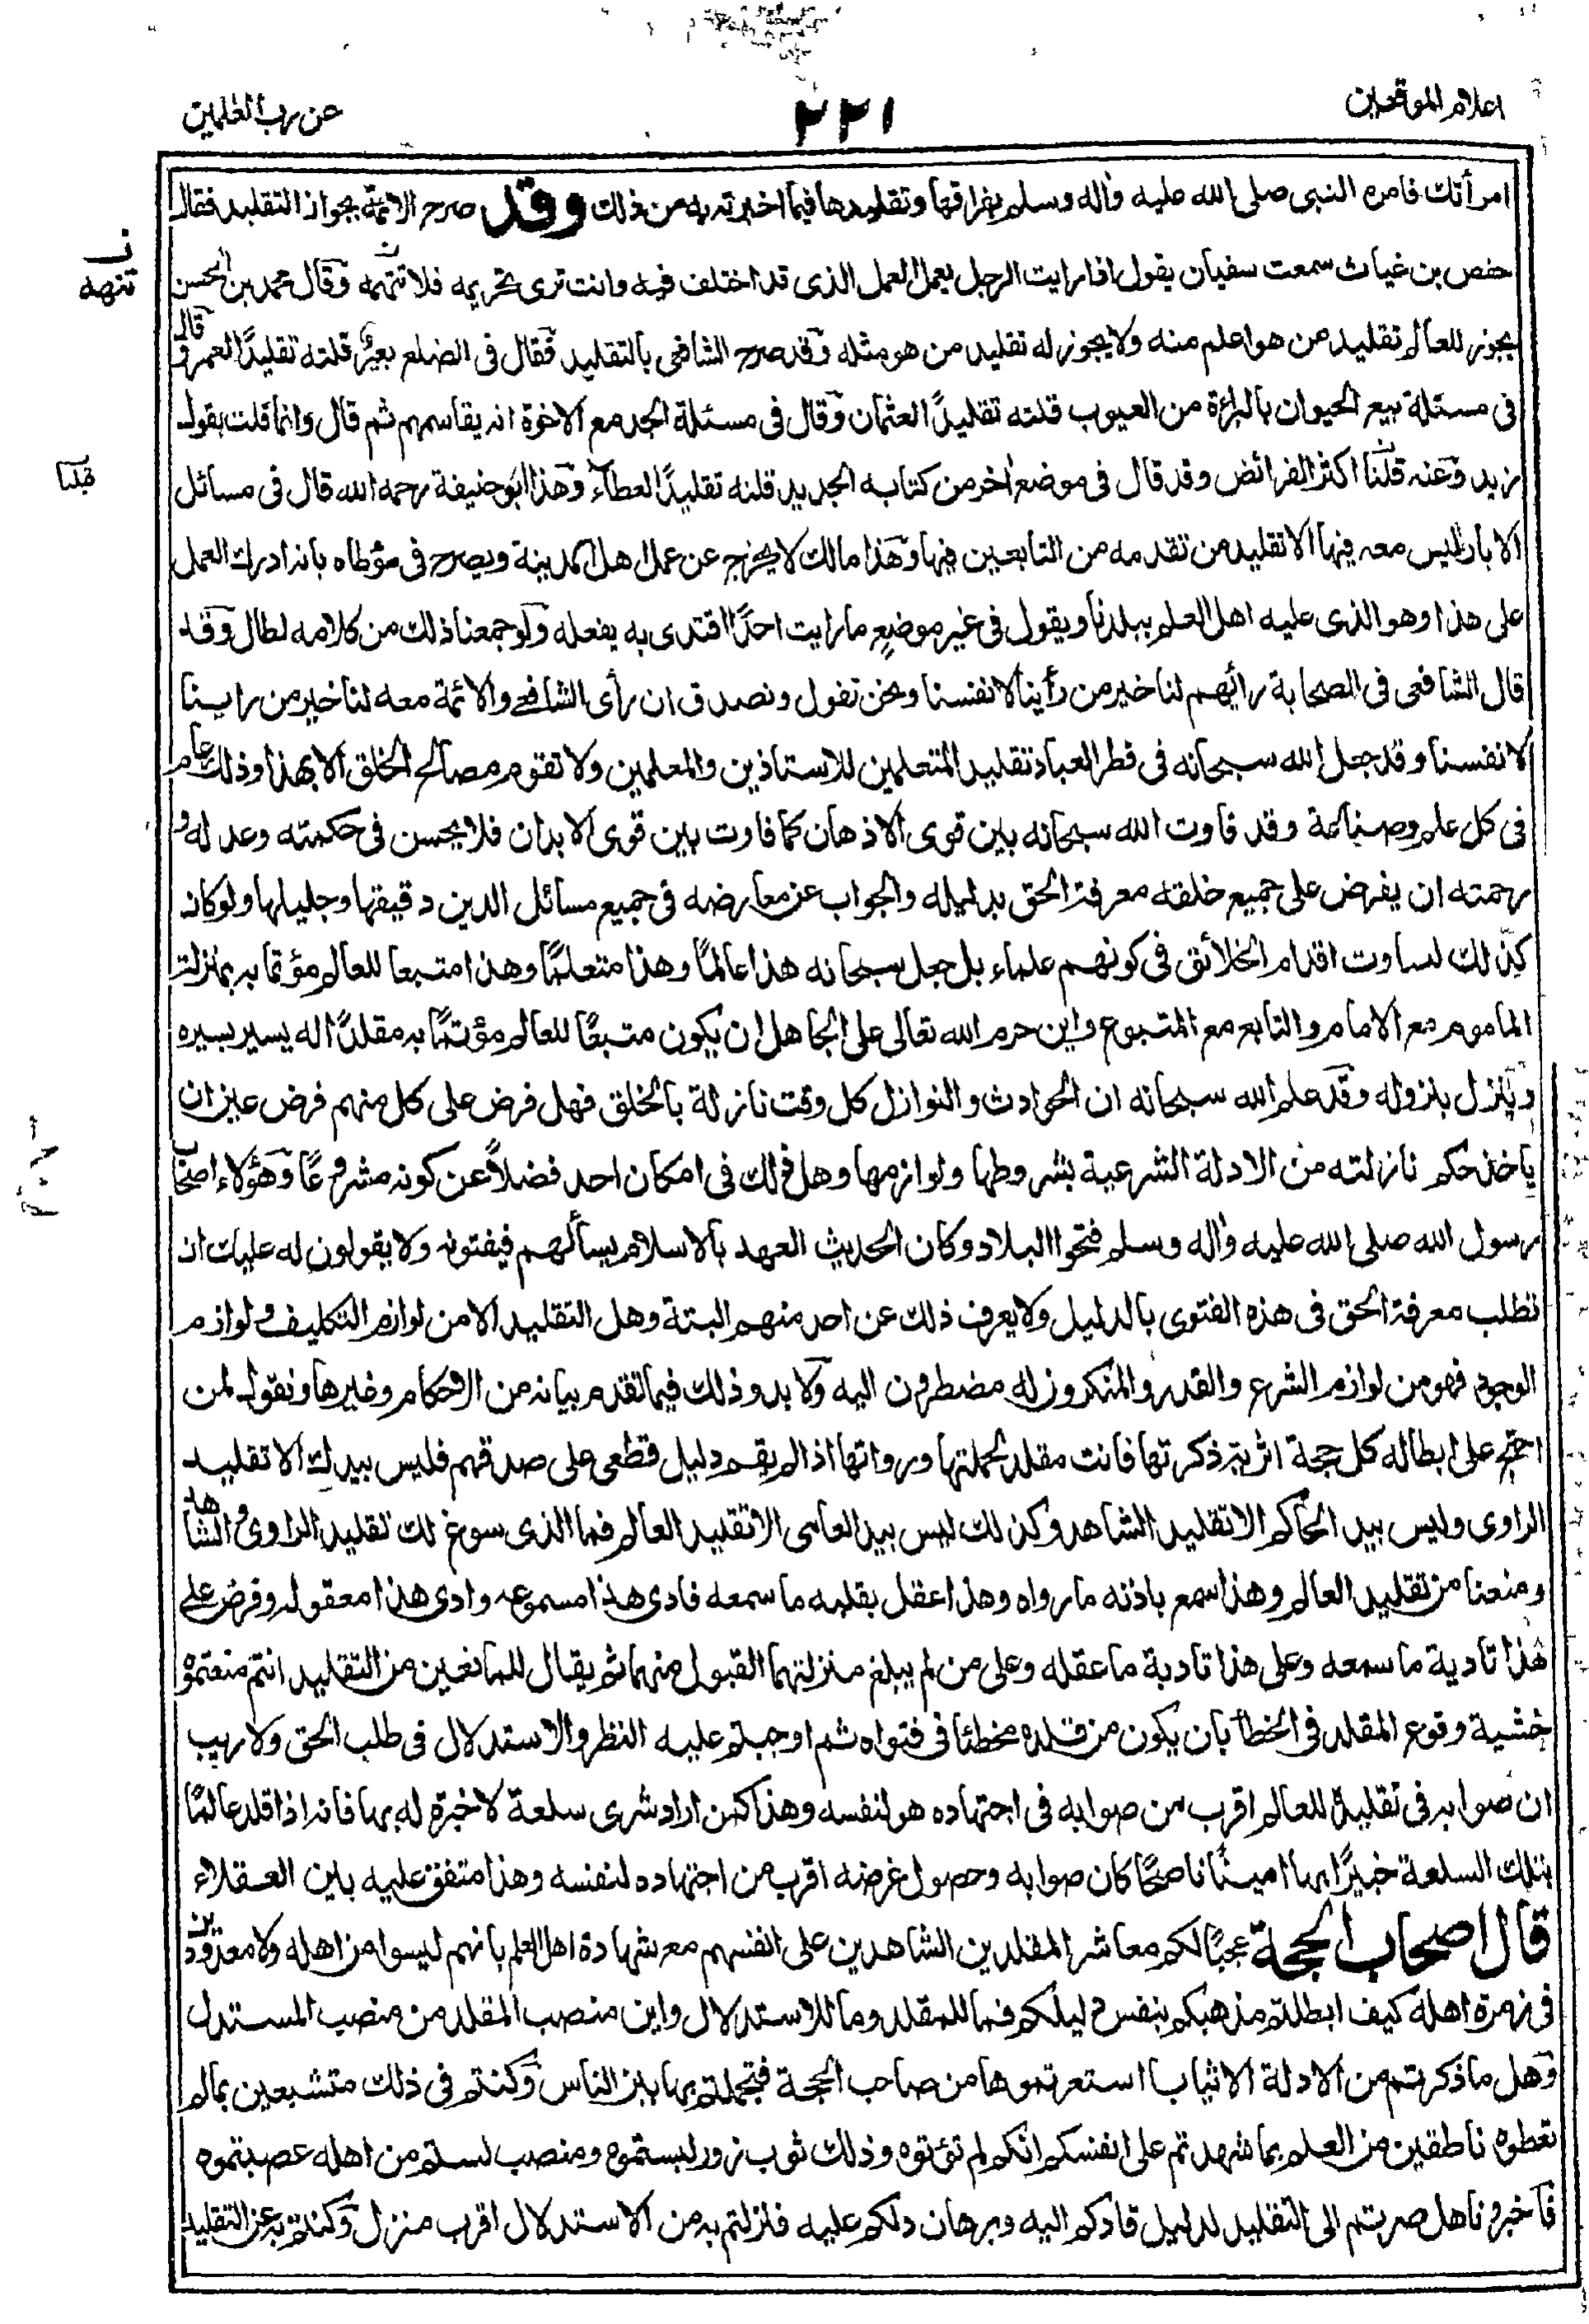 اعلام الموقعين
٢٢١
عن رب العلمين
امرأتك فامره النبى صلى الله عليه واله وسلم بفراقها وتقليدها فيما اخبرته به من ذلك وقد صرح الائمة بجواز التقليد فقال
حفص بن غياث سمعت سفيان يقول اذا رايت الرجل يعمل العمل الذى قد اختلف فيه وانت ترى تحريمه فلا تتهمه وقال محمد بن الحسن
ن
تنهه
يجوز للعالم تقليد من هو اعلم منه ولا يجوز له تقليد من هو مثله وقد صرح الشافعى بالتقليد فقال فى الضلع بعير قلته تقليدًا لعمر وقال
فى مسئلة بيع الحيوان بالبراءة من العيوب قلته تقليدًا لعثمان وقال فى مسئلة الجد مع الاخوة انه يقاسمهم ثم قال وانما قلت بقول
زيد وعنه قلنا اكثر الفرائض وقد قال فى موضع اخر من كتابه الجديد قلته تقليدًا لعطاء وهذا ابو حنيفة رحمه الله قال فى مسائل
قبلنا
الابار ليس معه فيها الا تقليد من تقدمه من التابعين فيها وهذا مالك لا يخرج عن عمل اهل المدينة ويصرح فى مؤطاه بانه ادرك العمل
على هذا وهو الذى عليه اهل العلم ببلدنا ويقول فى غير موضع ما رايت احدًا اقتدى به يفعله ولو جمعنا ذلك من كلامه لطال وقد
قال الشافعى فى الصحابة رائهم لنا خير من رأينا لانفسنا ونحن نقول ونصدق ان رأى الشافعى والائمة معه لنا خير من راينا
لانفسنا وقد جعل الله سبحانه فى فطر العباد تقليد المتعلمين للاستاذين والمعلمين ولا تقوم مصالح الخلق الا بهذا وذلك عام
فى كل علم وصناعة وقد فاوت الله سبحانه بين قوى الاذهان كما فاوت بين قوى الابدان فلا يحسن فى حكمته وعدله و
رحمته ان يفرض على جميع خلقه معرفة الحق بدليله والجواب عن معارضه فى جميع مسائل الدين دقيقها وجليلها ولو كان
كذلك لساوت اقدام الخلائق فى كونهم علماء بل جعل سبحانه هذا عالمًا وهذا متعلمًا وهذا متبعا للعالم مؤتما به بمنزلة
الماموم مع الامام والتابع مع المتبوع واين حرم الله تعالى على الجاهل ان يكون متبعًا للعالم مؤتمًا به مقلدًا له يسير بسيره
وينزل بنزوله وقد علم الله سبحانه ان الحوادث والنوازل كل وقت نازلة بالخلق فهل فرض على كل منهم فرض عين ان
ياخذ حكم نازلته من الادلة الشرعية بشروطها ولوازمها وهل ذلك فى امكان احد فضلاً عن كونه مشروعًا وهؤلاء اصحاب
رسول الله صلى الله عليه واله وسلم فتحوا البلاد وكان الحديث العهد بالاسلام يسألهم فيفتونه ولا يقولون له عليك ان
تطلب معرفة الحق فى هذه الفتوى بالدليل ولا يعرف ذلك عن احد منهم البتة وهل التقليد الا من لوازم التكليف ولوازم
الوجود فهو من لوازم الشرع والقدر والمنكرون له مضطرون اليه ولا بد وذلك فيما تقدم بيانه من الاحكام وغيرها ونقول لمن
احتج على ابطاله كل حجة اثرية ذكرتها فانت مقلد لحملتها ورواتها اذا لم يقم دليل قطعى على صدقهم فليس بيدك الا تقليد
الراوى وليس بيد الحاكم الا تقليد الشاهد وكذلك ليس بيد العامى الا تقليد العالم فما الذى سوغ لك تقليد الراوى والشاهد
ومنعنا من تقليد العالم وهذا سمع باذنه ما رواه وهذا عقل بقلبه ما سمعه فادى هذا مسموعه وادى هذا معقوله وفرض على
هذا تادية ما سمعه وعلى هذا تادية ما عقله وعلى من لم يبلغ منزلتهما القبول منهما ثم يقال للمانعين من التقليد انتم منعتموه
خشية وقوع المقلد فى الخطأ بان يكون من قلده مخطئا فى فتواه ثم اوجبتم عليه النظر والاستدلال فى طلب الحق ولا ريب
ان صوابه فى تقليده للعالم اقرب من صوابه فى اجتهاده هو لنفسه وهذا كمن اراد شرى سلعة لا خبرة له بها فانه اذا قلد عالمًا
بتلك السلعة خبيرًا بها امينًا ناصحًا كان صوابه وحصول غرضه اقرب من اجتهاده لنفسه وهذا متفق عليه بين العقلاء
قال اصحاب الحجة عجبًا لكم معاشر المقلدين الشاهدين على انفسهم مع شهادة اهل العلم بانهم ليسوا من اهله ولا معدودين
فى زمرة اهله كيف ابطلتم مذهبكم بنفس دليلكم فما للمقلد وما للاستدلال واين منصب المقلد من منصب المستدل
وهل ما ذكرتم من الادلة الا ثيابا استعرتموها من صاحب الحجة فتجملتم بها بين الناس وكنتم فى ذلك متشبعين بما لم
تعطوه ناطقين من العلم بما شهدتم على انفسكم انكم لم تؤتوه وذلك ثوب زور لبستموه ومنصب لستم من اهله غصبتموه
فاخبرونا هل صرتم الى التقليد لدليل قادكم اليه وبرهان دلكم عليه فنزلتم به من الاستدلال اقرب منزل وكنتم به عن التقليد